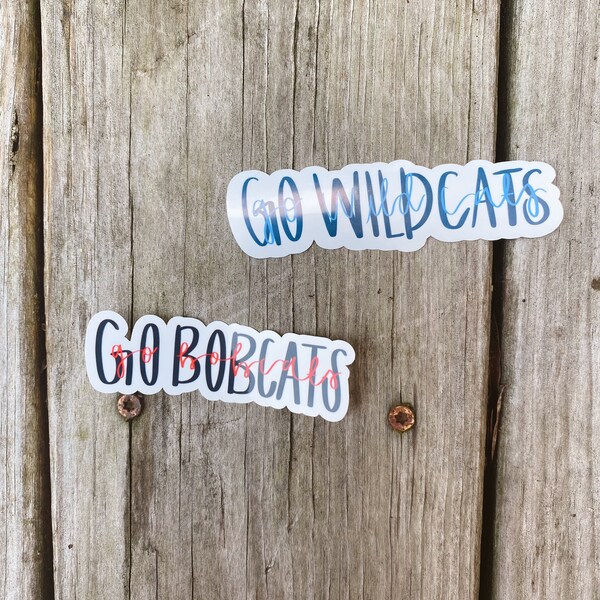 GO WILDCATS
go wild cats
GO BOBCATS
go bobcats